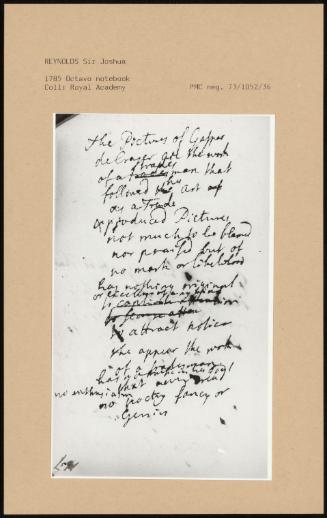 REYNOLDS Sir Joshua
1785 Octavo notebook
Coll: Royal Academy
PMC neg. 73/1052/36
the Pictures of Gaspar
de Craer are the work
of a trades man that
followed his Art as
as a Trade
& produced Pictures
not much to be blamed
nor praised but of
no mark or likelihood
has nothing original
or excellent
to captivate attention
to attract notice
the appear the work
of a tradesman
that never
no enthusiasm
no poetry fancy or
Genius